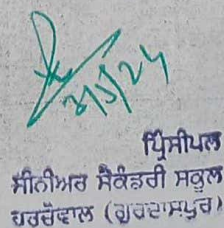 3/5/24
ਪ੍ਰਿੰਸੀਪਲ
ਸੀਨੀਅਰ ਸੈਕੰਡਰੀ ਸਕੂਲ
ਹਰਚੋਵਾਲ (ਗੁਰਦਾਸਪੁਰ)